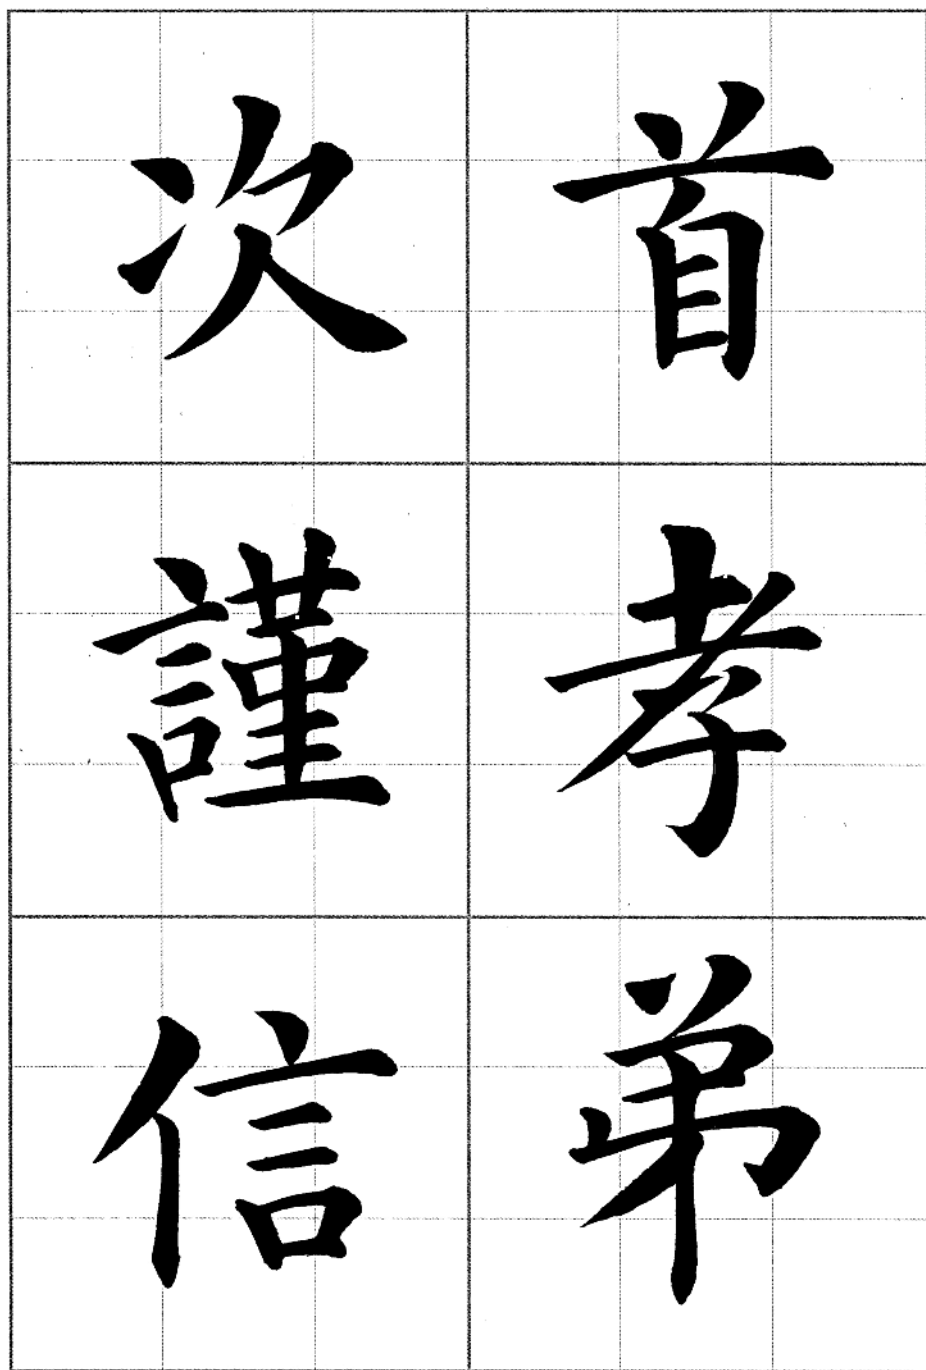 首孝弟
次謹信